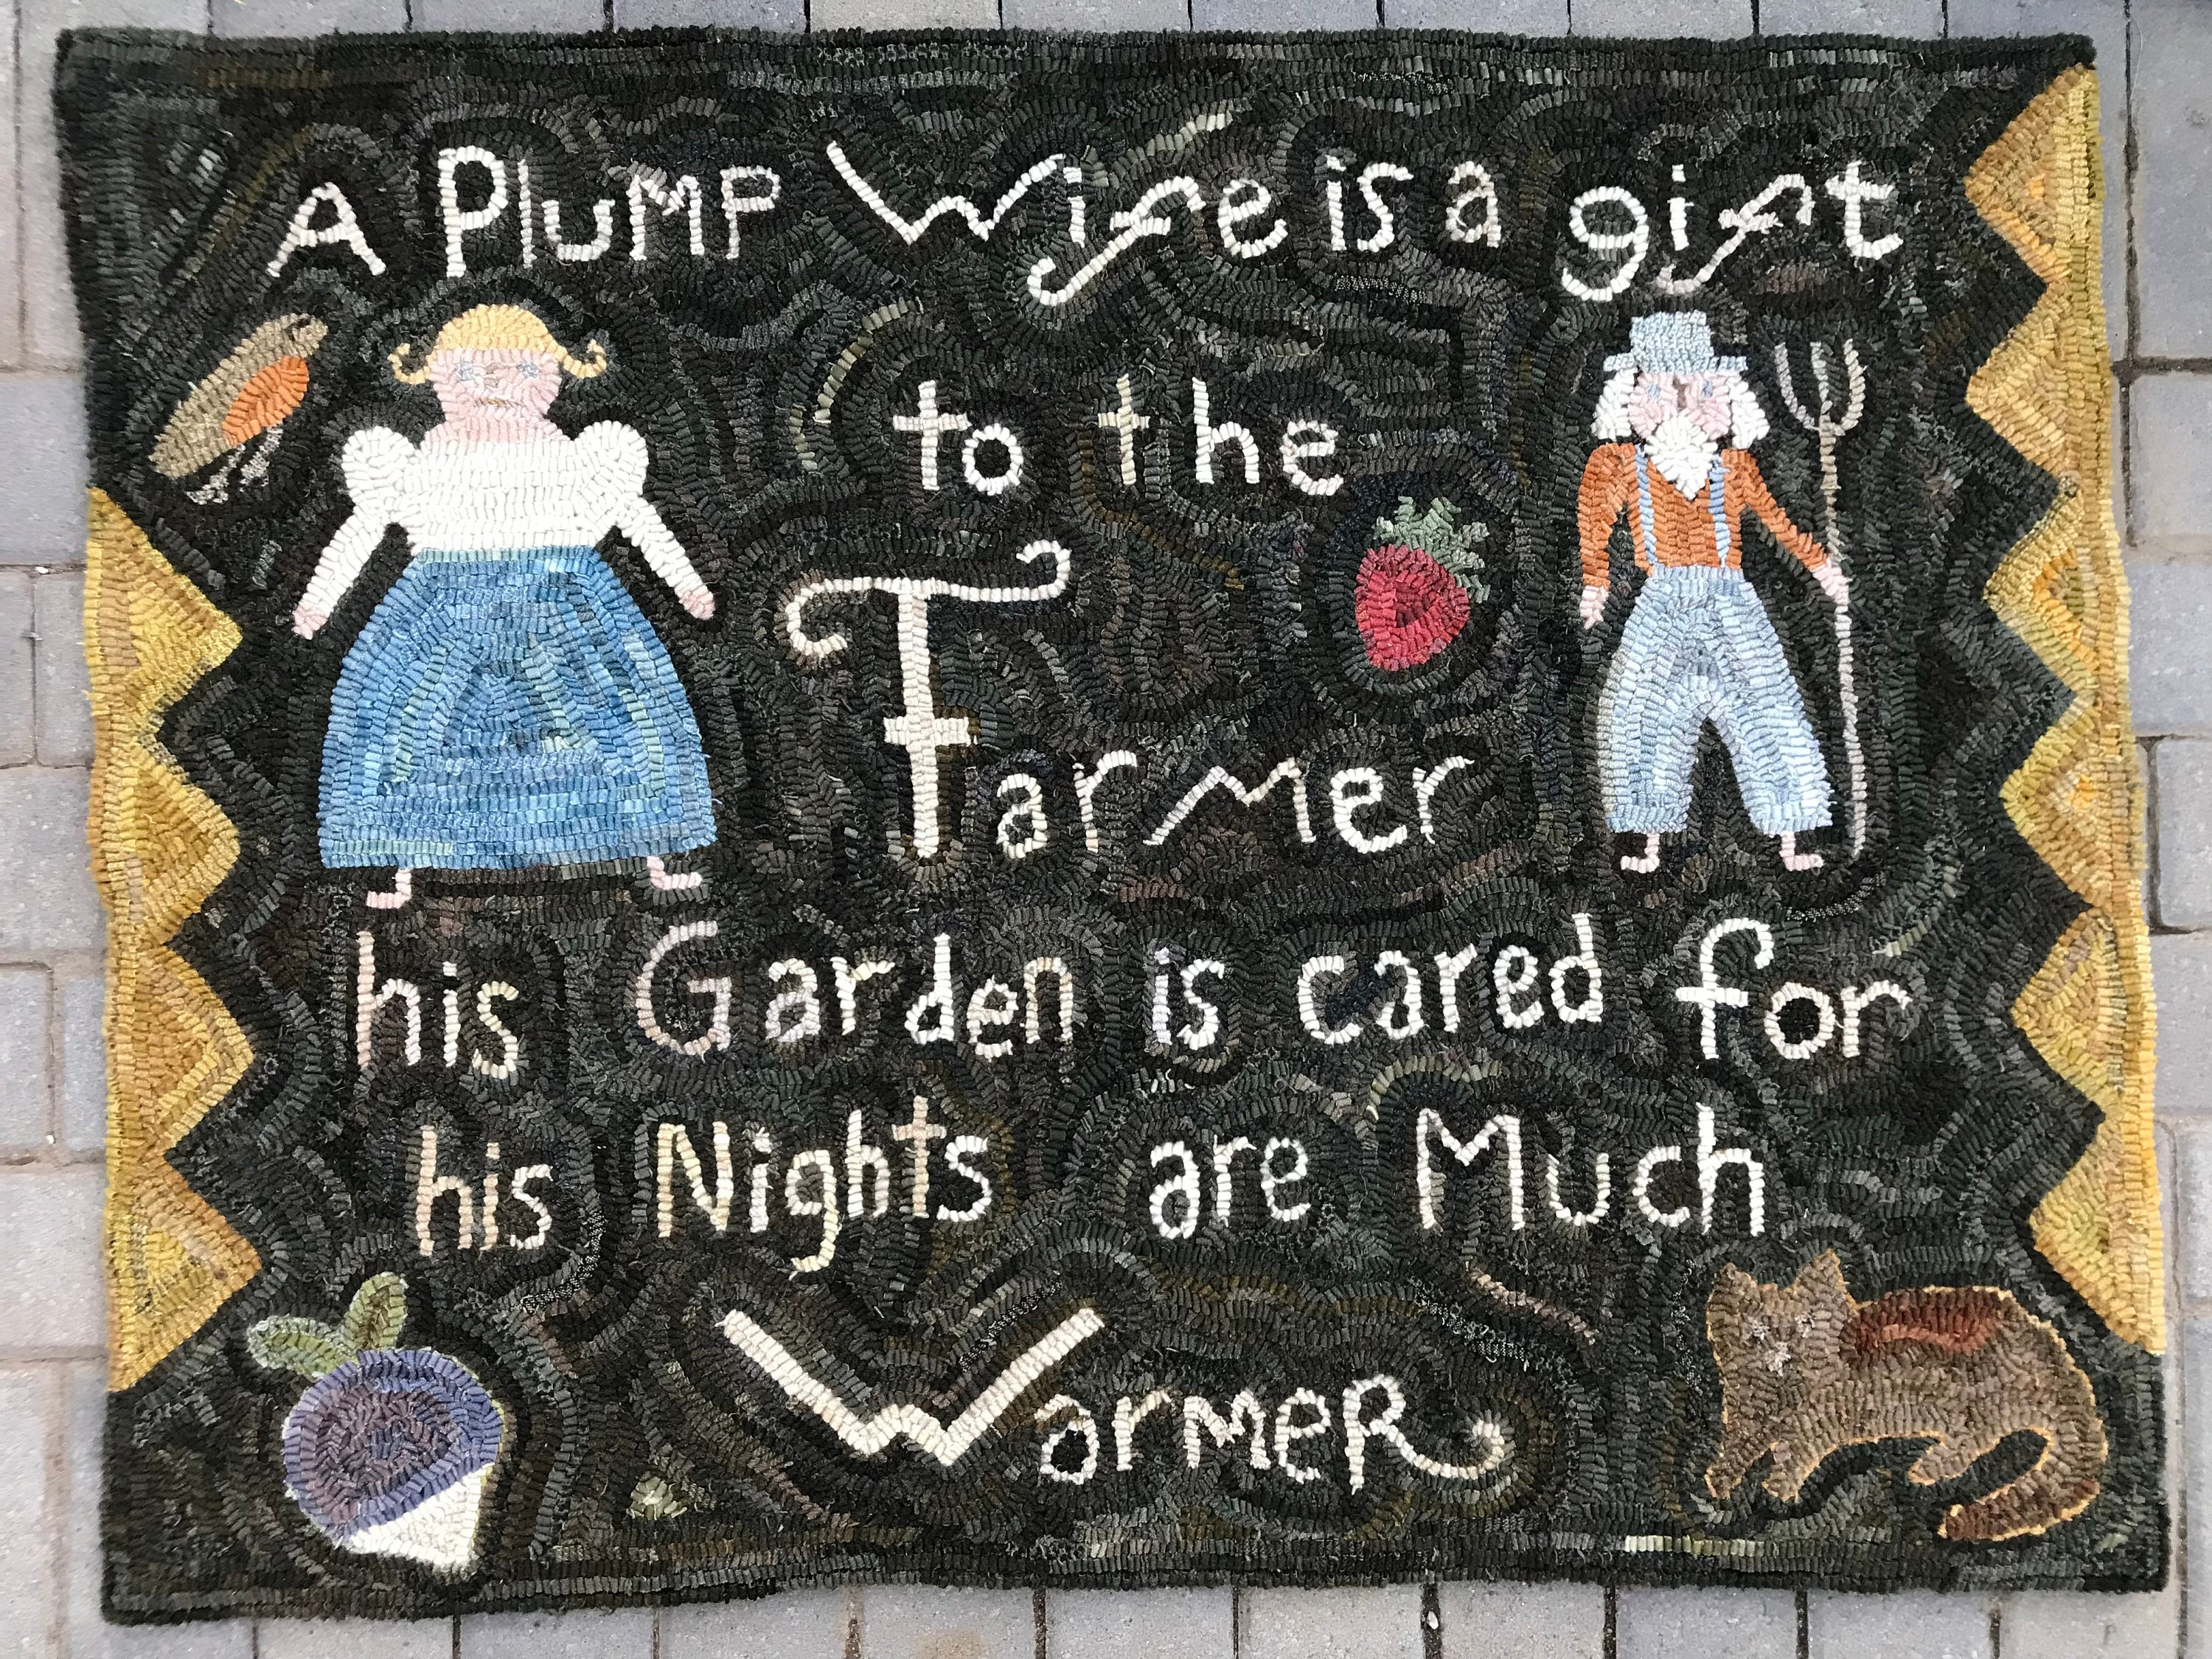 A PluMP Wife is a gift
to the
Farmer
his Garden is cared for
his Nights are Much
WarmeR